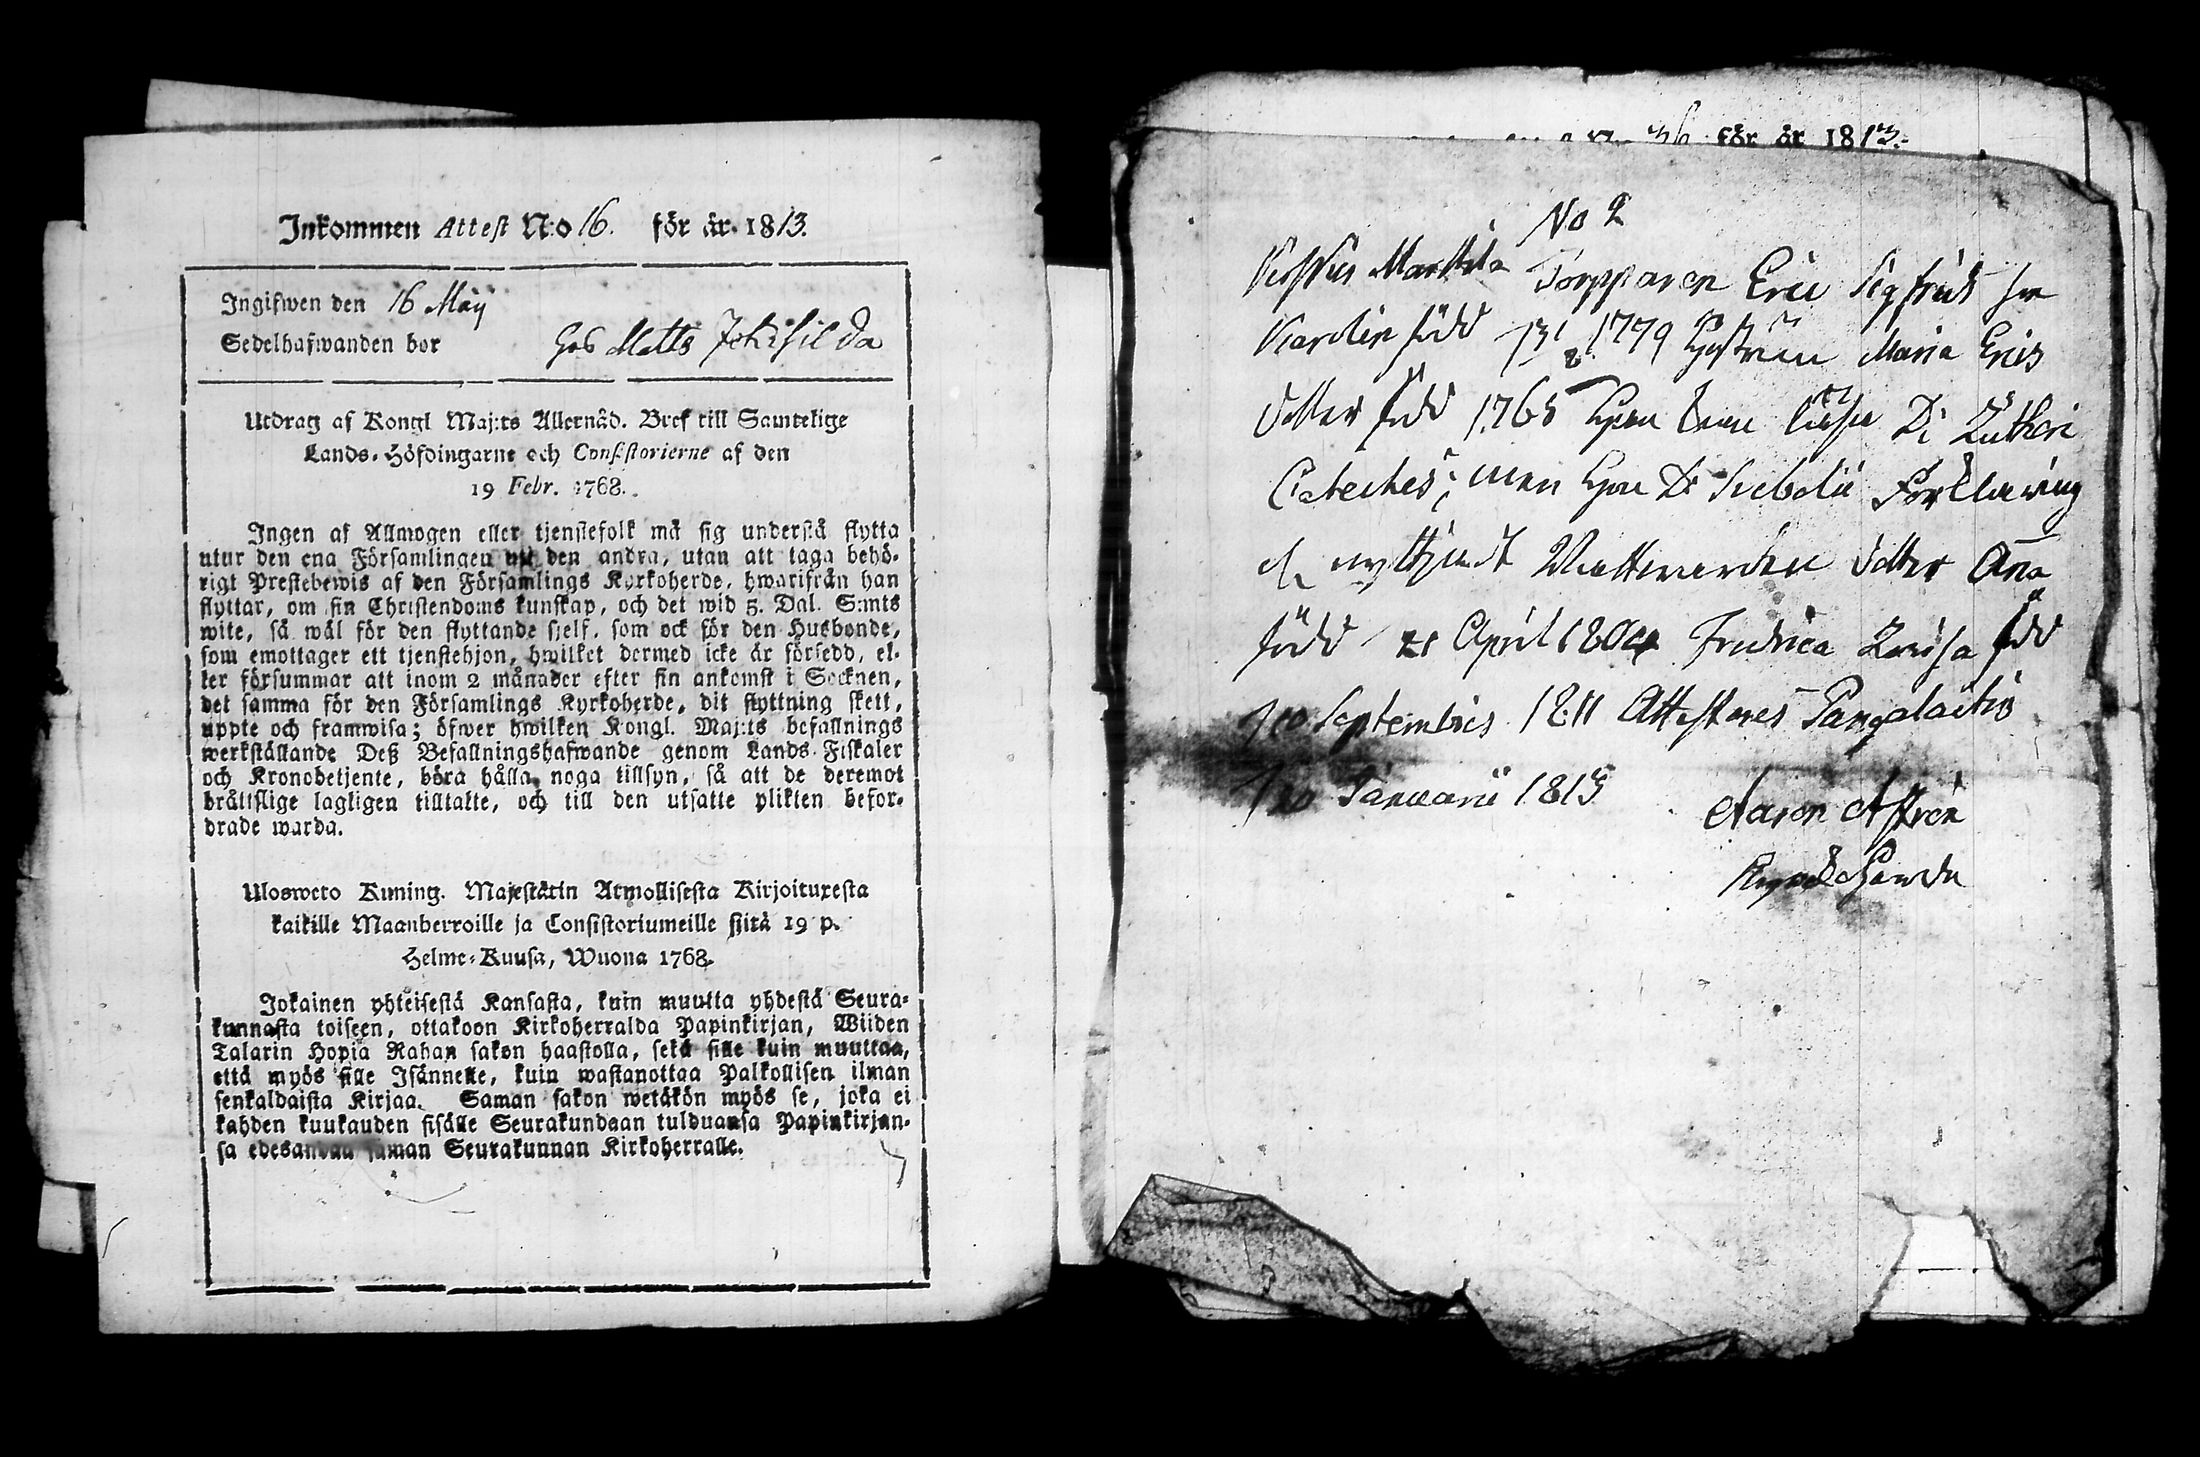 Inkommen Attest N:o 16. för år 1813.
Ingifwen den 16 Maij
Sedelhafwanden bor hos Matts
Utdrag af Kongl Maj:ts Allernåd. Bref till Samtelige
Lands-Höfdingarne och Consistorierne af den
19 Febr. 1768.
Ingen af Allmogen eller tjenstefolk må sig understå flytta
utur den ena Församlingen uti den andra, utan att taga behö-
rigt Prestebewis af den Församlings Kyrkoherde, hwarifrån han
flyttar, om sin Christendoms kunskap, och det wid 5. Dal. S:mts
wite, så wäl för den flyttande sjelf, som ock för den Husbonde,
som emottager ett tjenstehjon, hwilket dermed icke är försedd, el-
ler försummar att inom 2 månader efter sin ankomst i Socknen,
det samma för den Församlings Kyrkoherde, dit flyttning skett,
uppte och framwisa; öfwer hwilken Kongl. Maj:ts befallnings
werkställande Deß Befallningshafwande genom Lands-Fiskaler
och Kronobetjente, böra hålla noga tillsyn, så att de deremot
bråttslige lagligen tilltalte, och till den utsatte plikten befor-
drade warda.
Ulosweto Kuning. Majestätin Armollisesta Kirjoituxesta
kaikille Maanherroille ja Consistoriumeille siitä 19 p.
Helme-Kuusa, Wuona 1768.
Jokainen yhteisestä Kansasta, kuin muutta yhdestä Seura-
kunnasta toiseen, ottakoon Kirkoherralda Papinkirjan, Wiiden
Talarin Hopia Rahan sakon haastolla, sekä sille kuin muuttaa,
että myös sille Isännelle, kuin wastanottaa Palkollisen ilman
senkaldaista Kirjaa. Saman sakon wetäkön myös se, joka ei
kahden kuukauden sisälle Seurakundaan tulduansa Papinkirjan-
sa edesanna saman Seurakunnan Kirkoherralle.
36 för år 1813.
No 2
Marttila Torpparen Eric Sigfrids son
Karolin född 1779 Hustrun Maria Erics
dotter född 1765 Luthers
Cateches; men Svebelii Förklaring
Nattvarden dotter Ana
född 21 April 1804 Fredrica Lovisa född
10 Septembris 1811 Attesteres Pangalaitio
Januarii 1813
Aaron Astrén